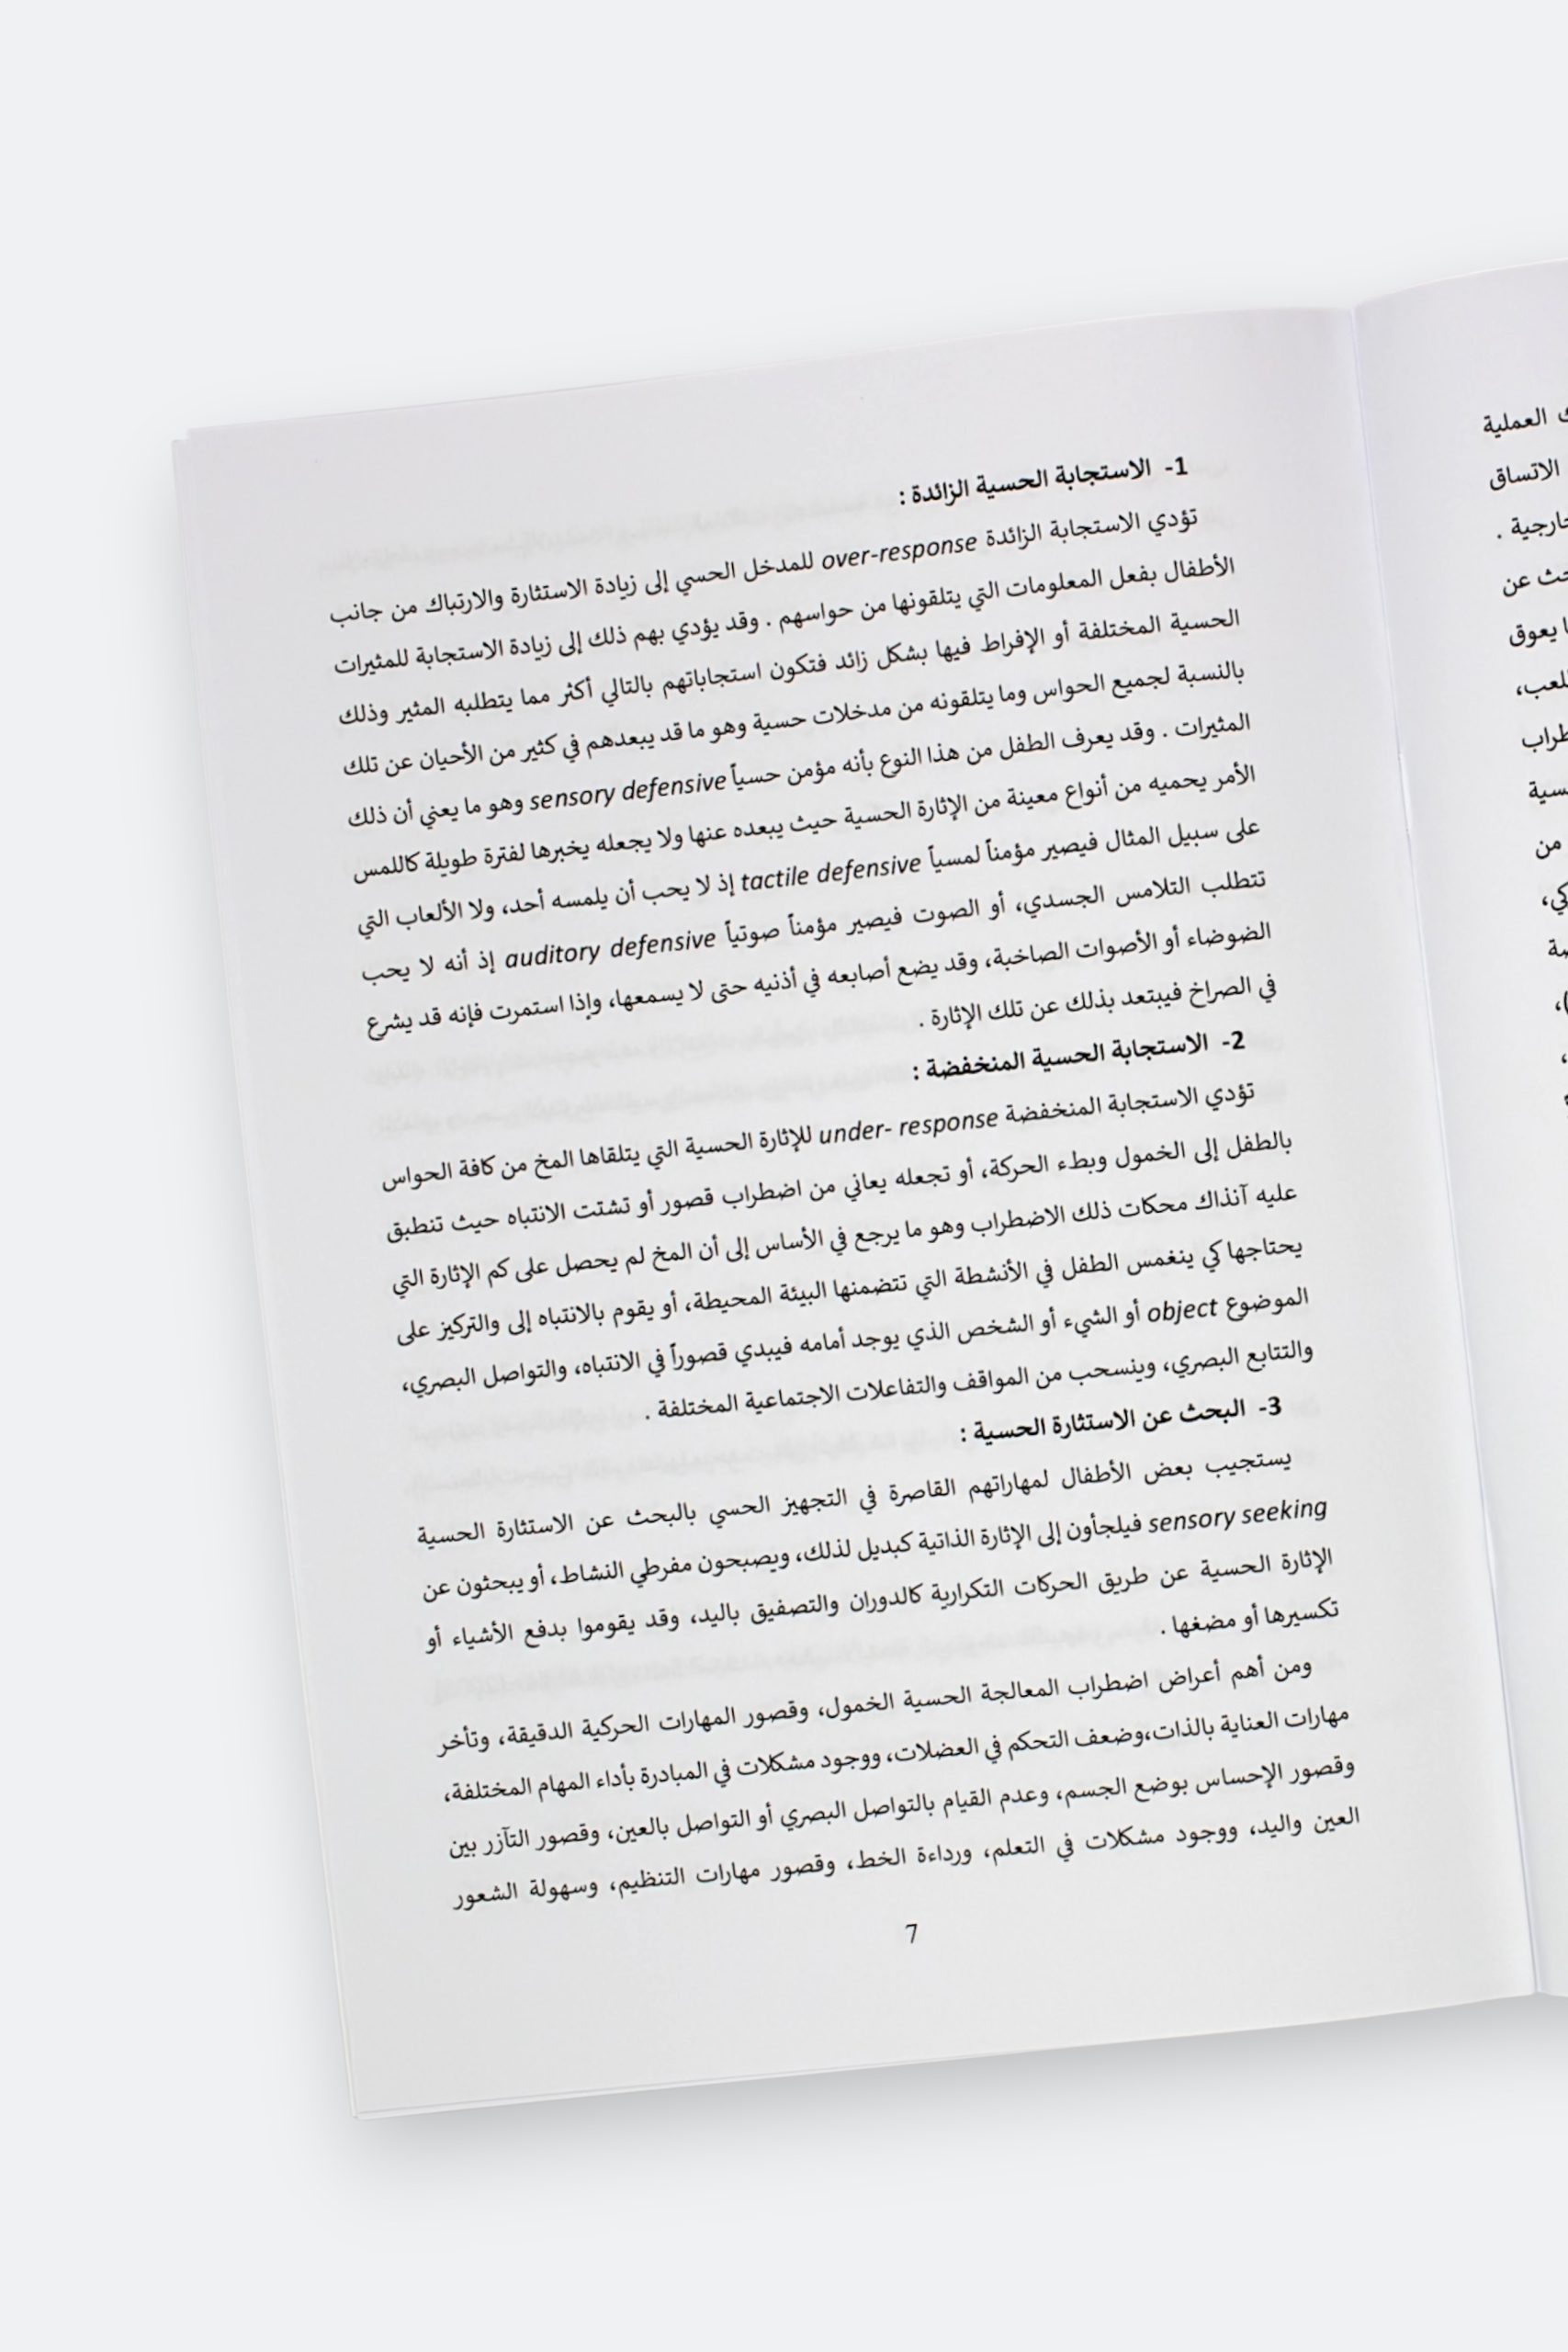 1- الاستجابة الحسية الزائدة :
تؤدي الاستجابة الزائدة over-response للمدخل الحسي إلى زيادة الاستثارة والارتباك من جانب
الأطفال بفعل المعلومات التي يتلقونها من حواسهم . وقد يؤدي بهم ذلك إلى زيادة الاستجابة للمثيرات
الحسية المختلفة أو الإفراط فيها بشكل زائد فتكون استجاباتهم بالتالي أكثر مما يتطلبه المثير وذلك
بالنسبة لجميع الحواس وما يتلقونه من مدخلات حسية وهو ما قد يبعدهم في كثير من الأحيان عن تلك
المثيرات . وقد يعرف الطفل من هذا النوع بأنه مؤمن حسياً sensory defensive وهو ما يعني أن ذلك
الأمر يحميه من أنواع معينة من الإثارة الحسية حيث يبعده عنها ولا يجعله يخبرها لفترة طويلة كاللمس
على سبيل المثال فيصير مؤمناً لمسياً tactile defensive إذ لا يحب أن يلمسه أحد، ولا الألعاب التي
تتطلب التلامس الجسدي، أو الصوت فيصير مؤمناً صوتياً auditory defensive إذ أنه لا يحب
الضوضاء أو الأصوات الصاخبة، وقد يضع أصابعه في أذنيه حتى لا يسمعها، وإذا استمرت فإنه قد يشرع
في الصراخ فيبتعد بذلك عن تلك الإثارة .
2- الاستجابة الحسية المنخفضة :
تؤدي الاستجابة المنخفضة under- response للإثارة الحسية التي يتلقاها المخ من كافة الحواس
بالطفل إلى الخمول وبطء الحركة، أو تجعله يعاني من اضطراب قصور أو تشتت الانتباه حيث تنطبق
عليه آنذاك محكات ذلك الاضطراب وهو ما يرجع في الأساس إلى أن المخ لم يحصل على كم الإثارة التي
يحتاجها كي ينغمس الطفل في الأنشطة التي تتضمنها البيئة المحيطة، أو يقوم بالانتباه إلى والتركيز على
الموضوع object أو الشيء أو الشخص الذي يوجد أمامه فيبدي قصوراً في الانتباه، والتواصل البصري،
والتتابع البصري، وينسحب من المواقف والتفاعلات الاجتماعية المختلفة .
3- البحث عن الاستثارة الحسية :
يستجيب بعض الأطفال لمهاراتهم القاصرة في التجهيز الحسي بالبحث عن الاستثارة الحسية
sensory seeking فيلجأون إلى الإثارة الذاتية كبديل لذلك، ويصبحون مفرطي النشاط، أو يبحثون عن
الإثارة الحسية عن طريق الحركات التكرارية كالدوران والتصفيق باليد، وقد يقوموا بدفع الأشياء أو
تكسيرها أو مضغها .
ومن أهم أعراض اضطراب المعالجة الحسية الخمول، وقصور المهارات الحركية الدقيقة، وتأخر
مهارات العناية بالذات،وضعف التحكم في العضلات، ووجود مشكلات في المبادرة بأداء المهام المختلفة،
وقصور الإحساس بوضع الجسم، وعدم القيام بالتواصل البصري أو التواصل بالعين، وقصور التآزر بين
العين واليد، ووجود مشكلات في التعلم، ورداءة الخط، وقصور مهارات التنظيم، وسهولة الشعور
7
العملية
الاتساق
عن
يعوق
من